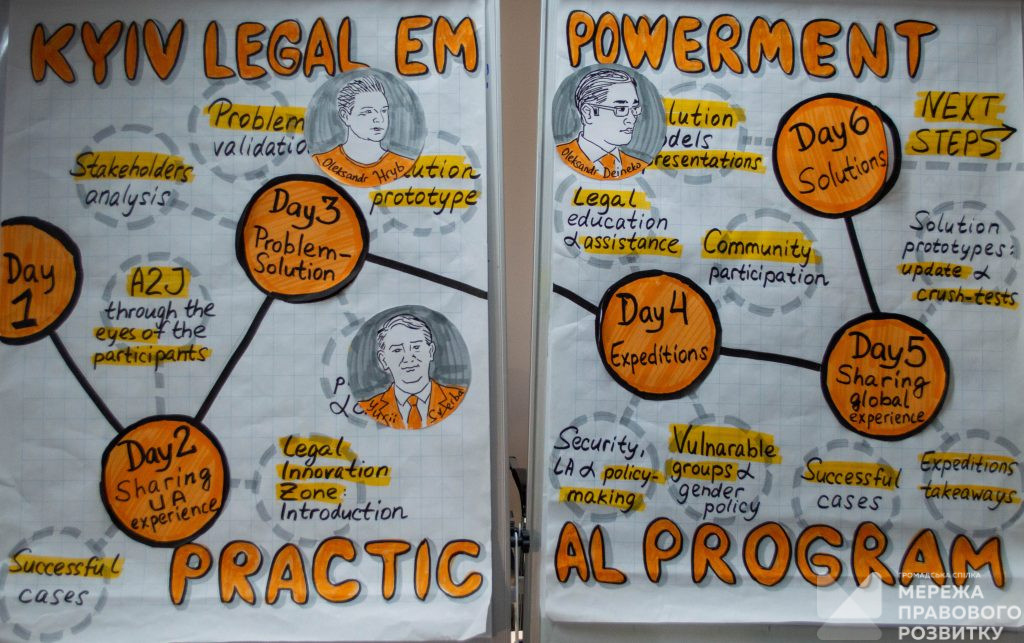 KYIV LEGAL EM
POWERMENT
Problem
validatio
Stakeholders
analysis
Oleksandr Hryb
lution
prototype
Day 3
Problem-
Solution
Day
1
A2J
through the
eyes of the
participants
Day 2
Sharing
UA
experience
Legal
Innovation
Zone:
Introduction
Successful
cases
PRACTIC
Oleksandr Deineko
lution
dels
resentations
Legal
education
& assistance
Community
participation
Day 6
Solutions
NEXT
STEPS
Solution
prototypes:
update &
crush-tests
Day 4
Expeditions
Day 5
Sharing
global
experience
Security,
LA & policy-
making
Vulnarable
groups &
gender
policy
Successful
cases
Expeditions
takeaways
AL PROGRAM
ГРОМАДСЬКА СПІЛКА
МЕРЕЖА
ПРАВОВОГО
РОЗВИТКУ